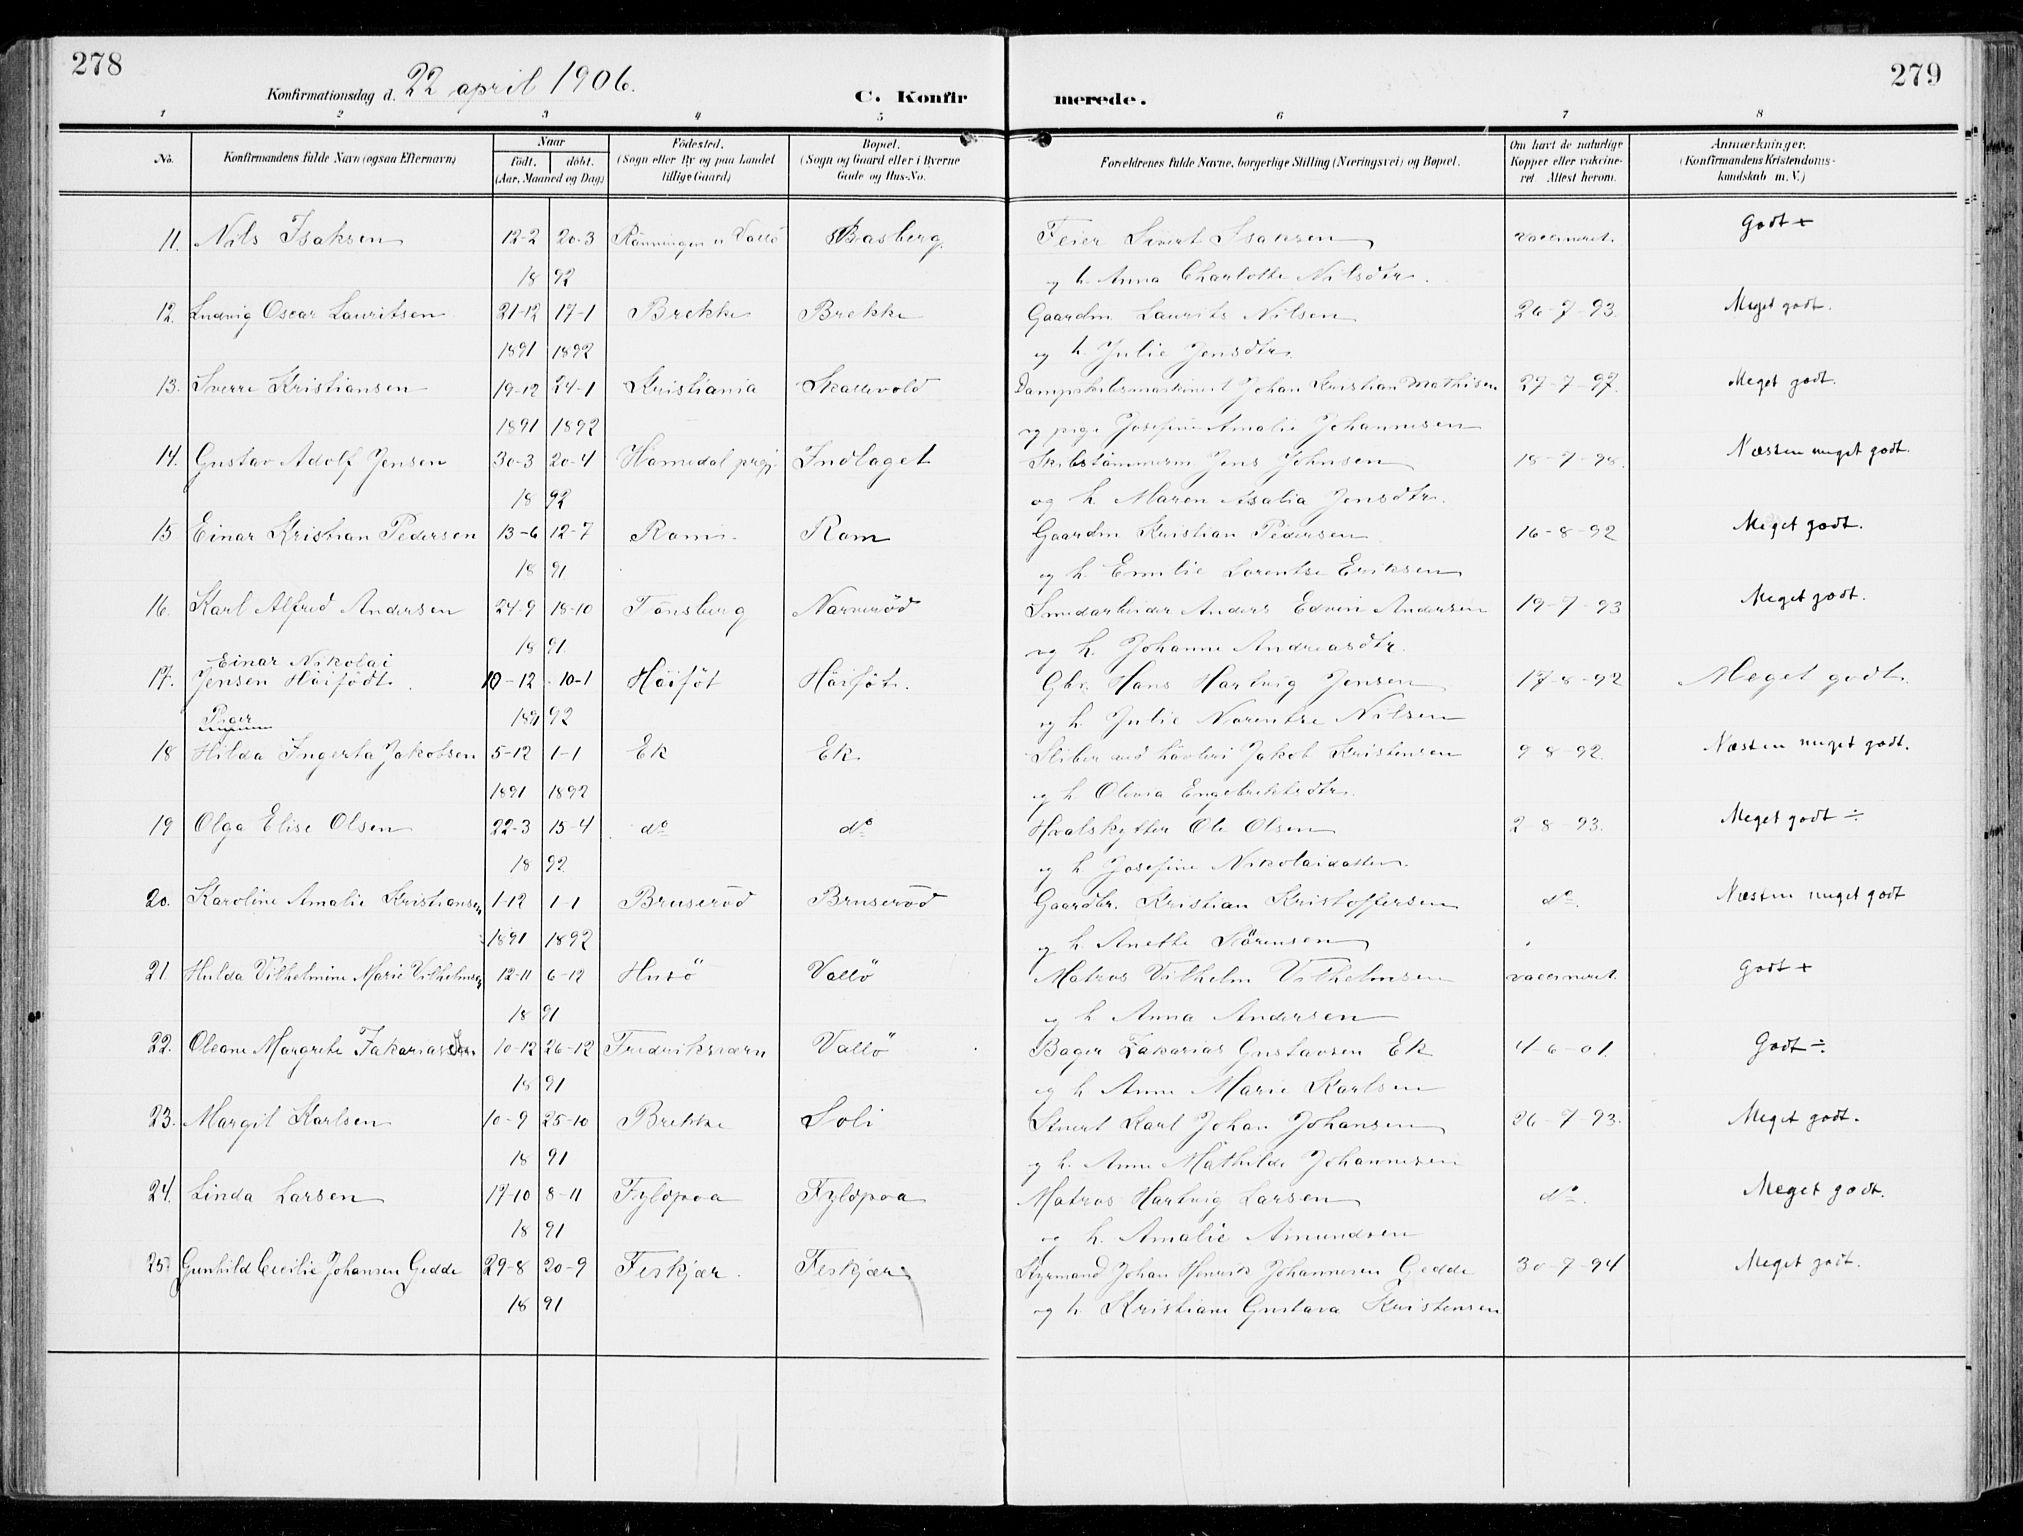 278
279
Konfirmationsdag d. 22 april 1906.
C. Konfir merede.
1 2 3 4 5 6 7 8
No.
Konfirmandens fulde Navn (ogsaa Efternavn)
Naar
født. døbt.
(Aar, Maaned og Dag)
Fødested.
(Sogn eller By og paa Landet
tillige Gaard)
Bopæl.
(Sogn og Gaard eller i Byerne
Gade og Hus-No.
Forældrenes fulde Navne, borgerlige Stilling (Næringsvei) og Bopæl.
Om havt de naturlige
Kopper eller vakcine-
ret. Attest herom.
Anmærkninger.
(Konfirmandens Kristendoms-
kundskab m. V.)
11. Nils Isaksen 12-2 20-3 Vallö Basberg. Feier Sivert Isaksen vaccineret. Godt +
18 92 og h. Anna Charlotte Nilsdtr.
12. Ludvig Oscar Lauritsen 21-12 17-1 Brekke Brekke Gaardm Laurits Nilsen 26-7-93. Meget godt.
1891 1892 og h. Julie Jensdtr.
13. Sverre Kristiansen 19-12 24-1 Kristiania Skallevold Dampskibsmaskinist Johan Kristian Mathisen 27-7-97. Meget godt.
1891 1892 og pige Josefine Amalie Johannesen
14. Gustav Adolf Jensen 30-3 20-4 Homedal prgj. Indlaget Skibstømmerm Jens Johnsen 18-7-98. Næsten meget godt.
18 92 og h. Maren Asalia Jensdtr.
15 Einar Kristian Pedersen 13-6 12-7 Rom Rom Gaardm Kristian Pedersen 16-8-92 Meget godt.
18 91 og h. Emilie Lorentse Eriksen
16. Karl Alfred Andersen 24-9 18-10 Tönsberg Narverød Smedarbeider Anders Edvin Andersen 19-7-93 Meget godt.
18 91 og h. Johanne Andreasdtr.
Einar Nikolai
17. Jensen Höifödt. 10-12 10-1 Höiföt Höiföt. Gbr. Hans Hartvig Jensen 17-8-92 Meget godt.
1891 92 og h. Julie Narentse Nilsen
Piger
18 Hilda Ingerta Jakobsen 5-12 1-1 Ek Ek. Sliber ved høvleri Jakob Kristensen 9-8-92. Næsten meget godt.
1891 1892 og h Olivia Engebrektsdtr.
19 Olga Elise Olsen 22-3 15-4 do do Hvalskytter Ole Olsen 2-8-93. Meget godt ÷
18 92 og h Josefine Nikolaidatter.
20. Karoline Amalie Kristiansen 1-12 1-1 Bruserød Bruserød Gaardbr. Kristian Kristoffersen do. Næsten meget godt
1891 1892 og h. Anette Sörensen
21. Hulda Vilhelmine Marie Vilhelmsen 12-11 6-12 Husö Vallö Matros Vilhelm Vilhelmsen vaccineret. Godt +
18 91 og h Anna Andersen
22. Oleane Margrete Zakariassen 10-12 26-12 Fredriksværn Vallö Bager Zakarias Gustavsen Ek 4-6-01. Godt ÷
18 91 og h Anne Marie Karlsen
23. Margit Karlsen 10-9 25-10 Brekke Soli Stuert Karl Johan Johansen 26-7-93. Meget godt.
18 91 og h. Anne Mathilde Johannesen
24. Linda Larsen 17-10 8-11 Fyldpaa Fyldpaa Matros Hartvig Larsen do. Meget godt.
18 91 og h. Amalie Amundsen
25. Gunhild Cecilie Johansen Gedde 29-8 20-9 Feskjær. Feskjær Styrmand Johan Henrik Johannesen Gedde 30-7-94 Meget godt.
18 91 og h. Kristiane Gustava Kristensen